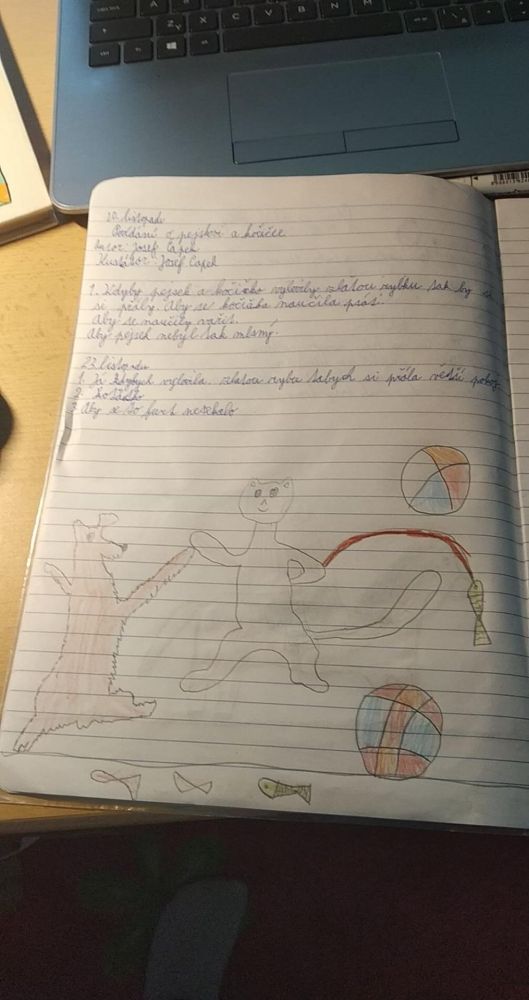 20. listopadu
Povídání o pejskovi a kočičce
Autor: Josef Čapek
Ilustátor: Josef Čapek
1. Kdyby pejsek a kočička vylovily zlatou rybku tak by si
si přály: Aby se kočička naučila psát.
Aby se naučily vařit.
Aby pejsek nebyl tak mlsný.
23. listopadu
1. Já kdybych vylovila zlatou rybu tabych si přála větší pokoj
2. koťátko
3. Aby se to furt nesekalo